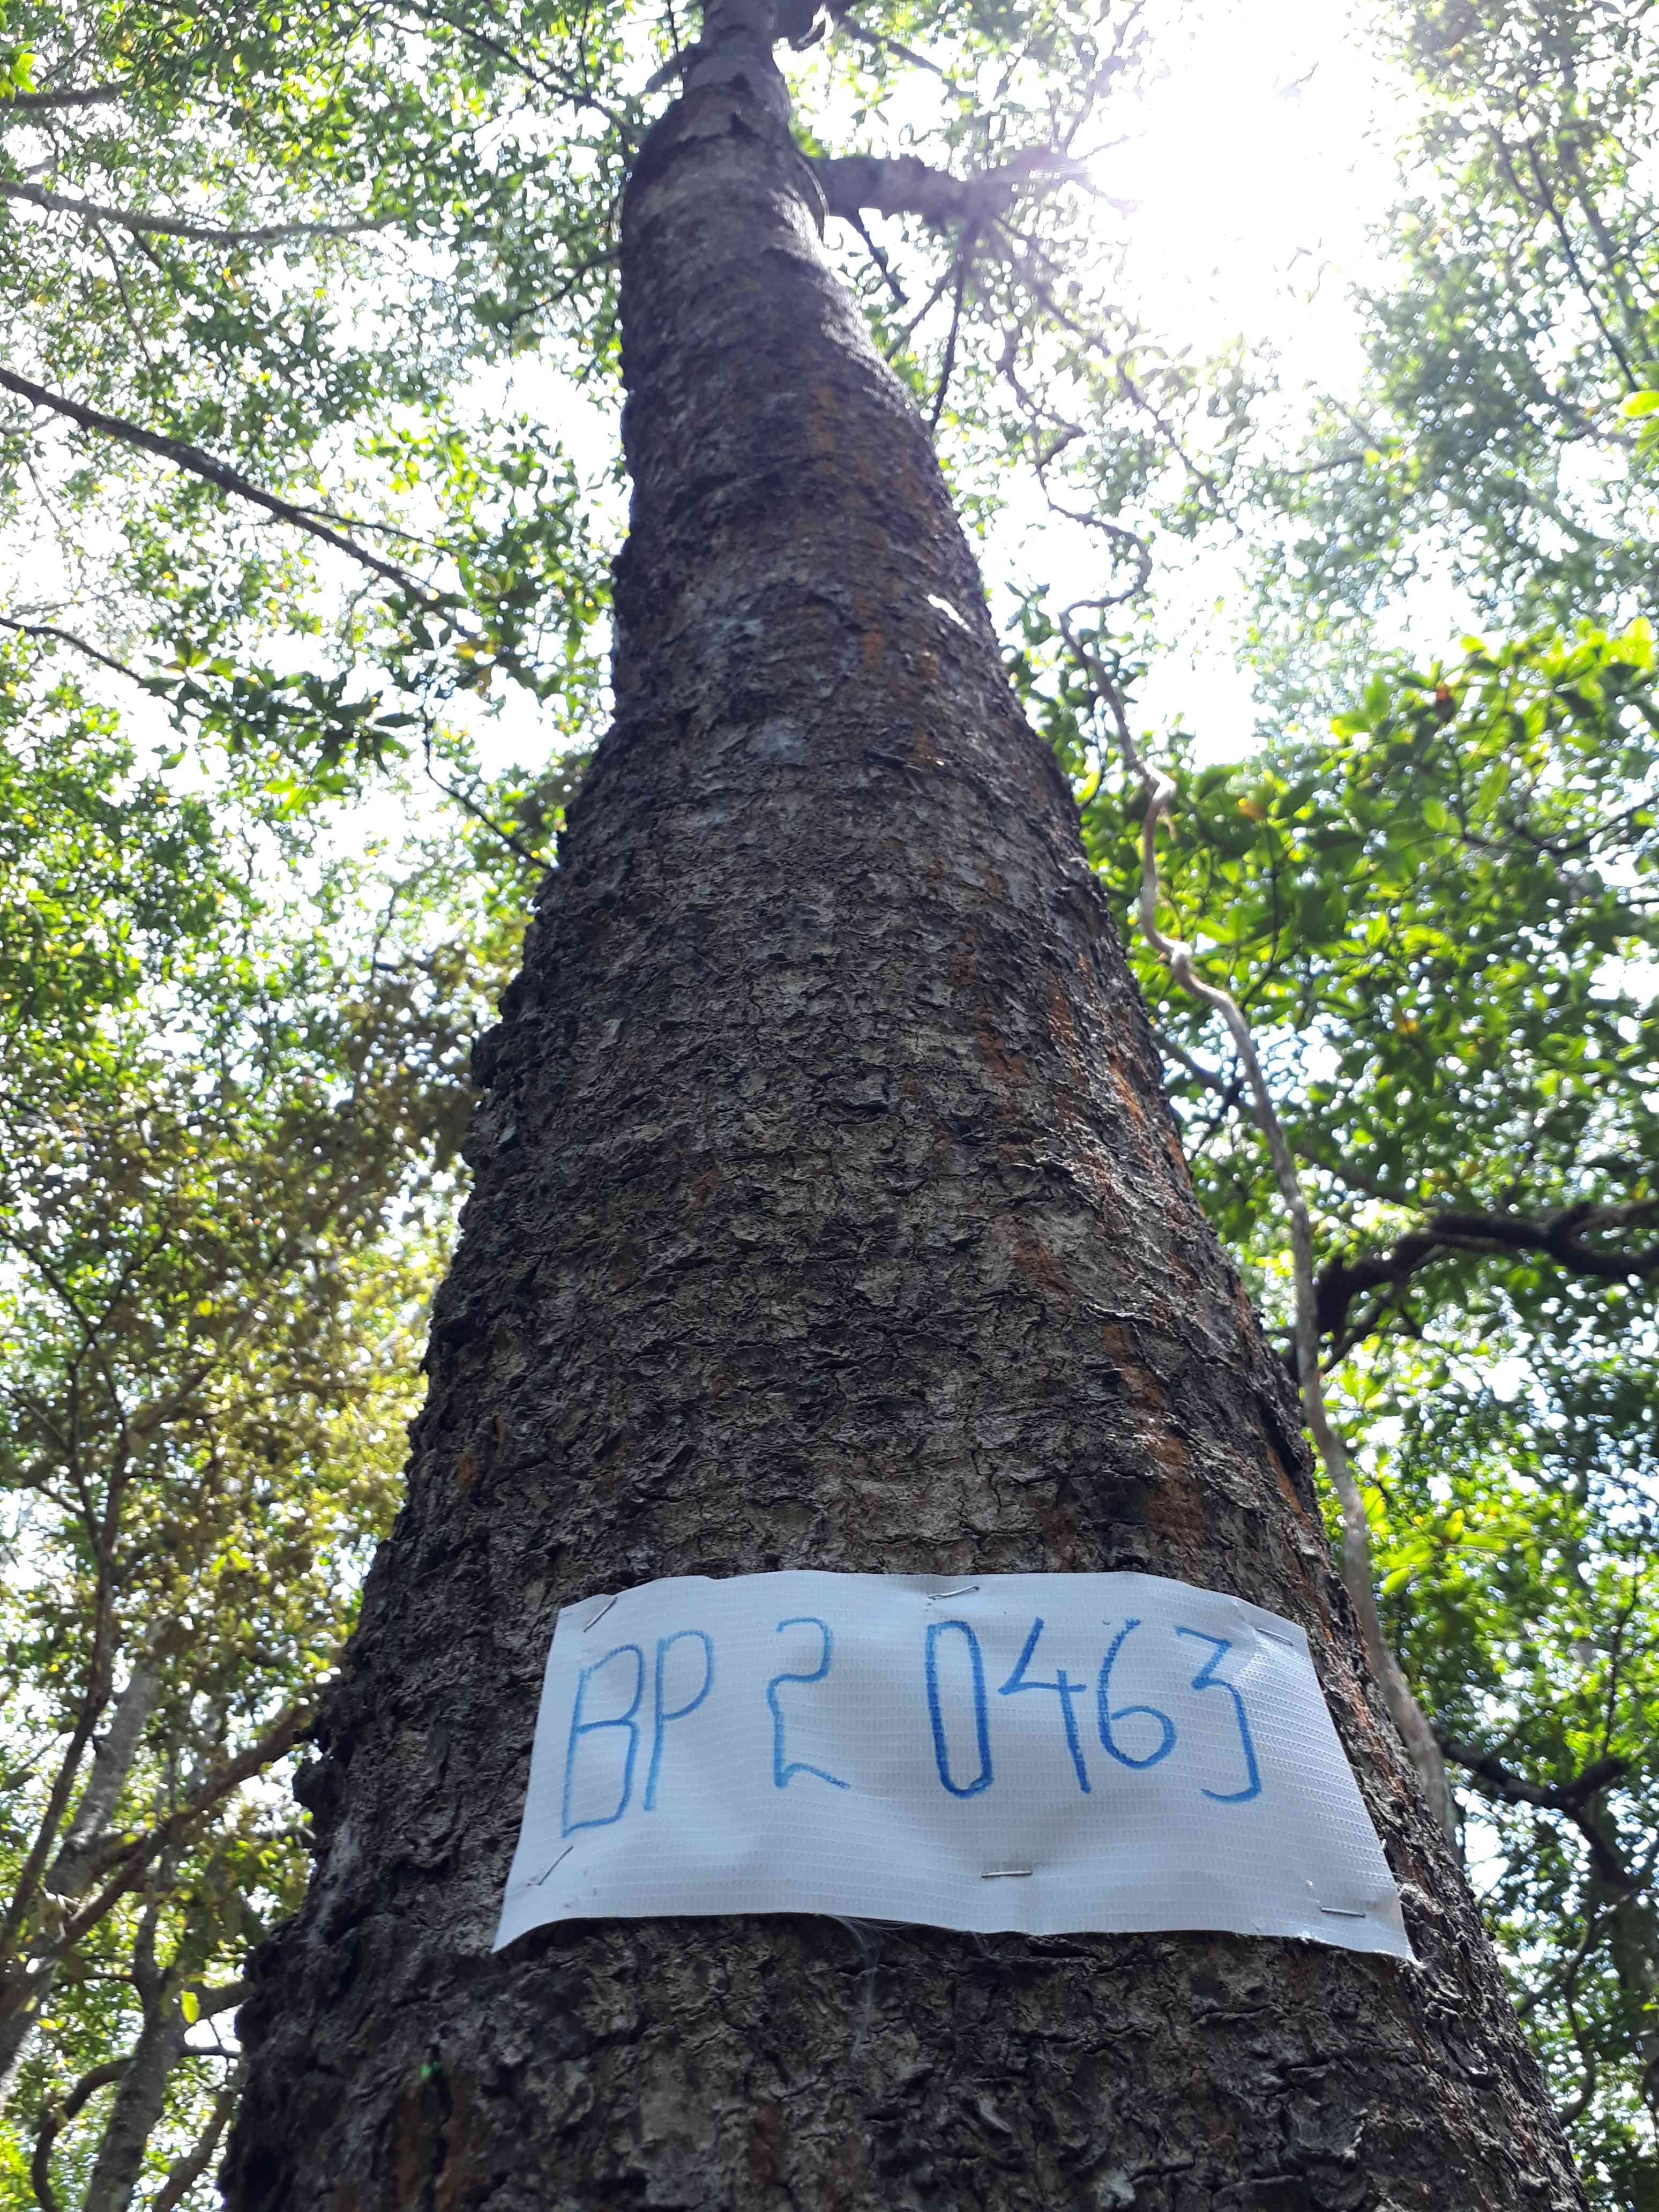 BP 2 0463